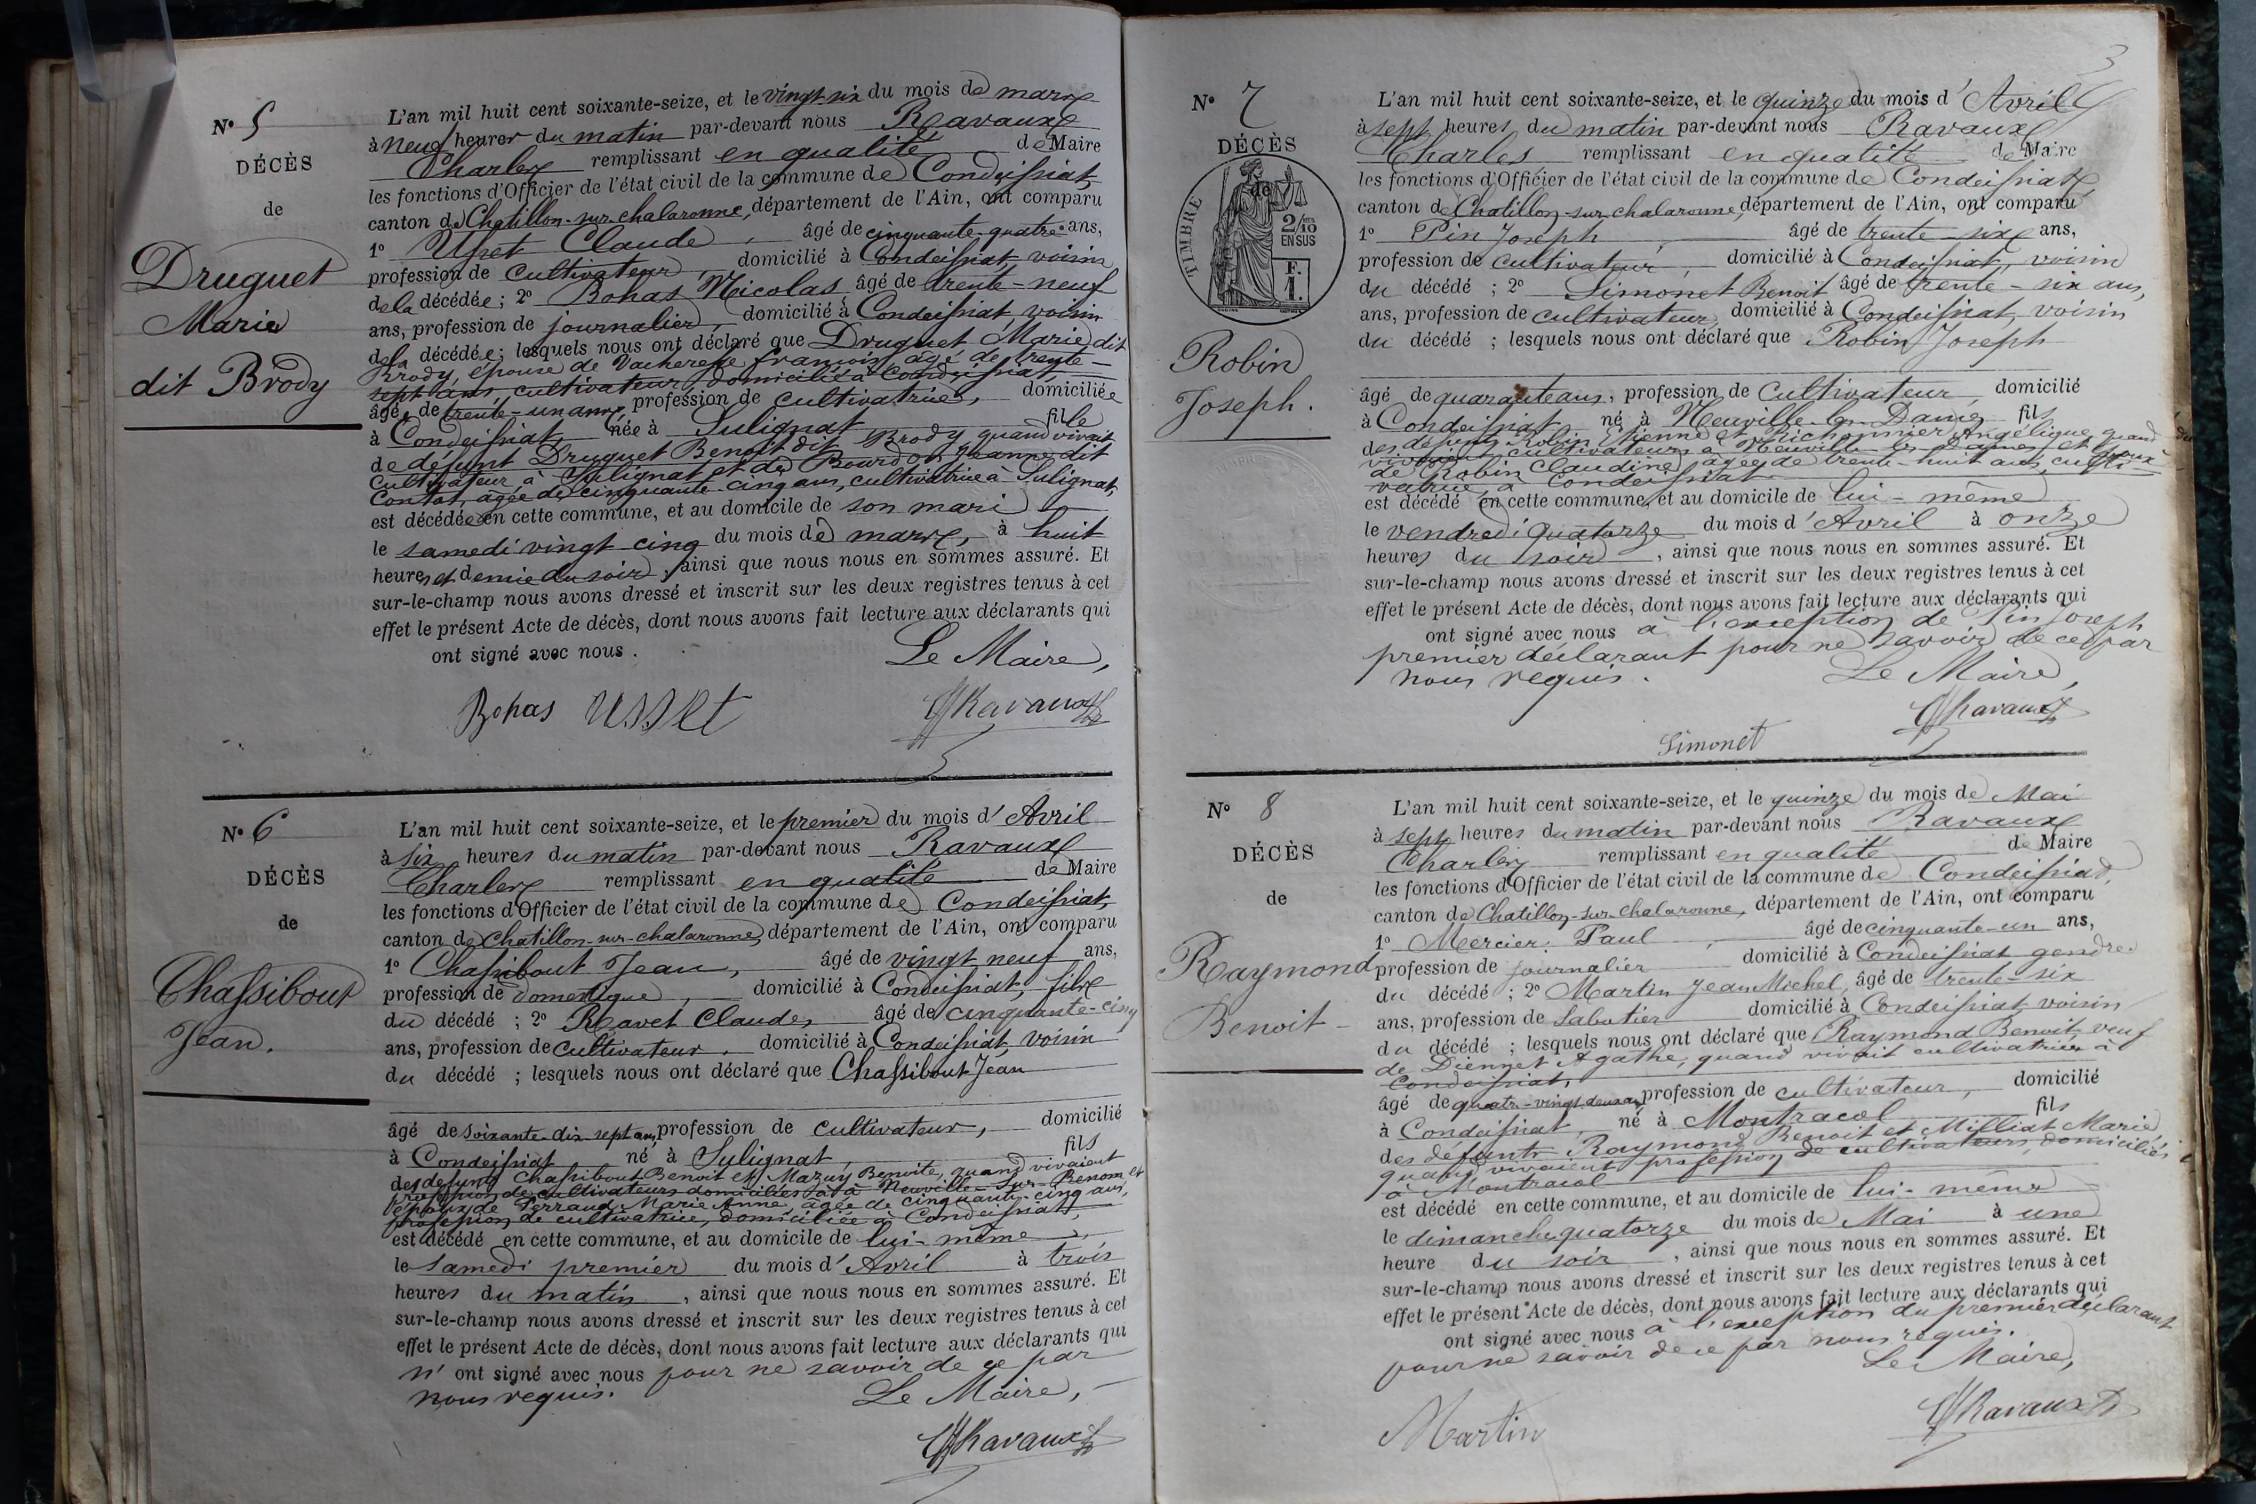 N° 5
DÉCÈS
de
Druguet
Marie
dit Brody
L'an mil huit cent soixante-seize, et le vingt-six du mois de mars
à neuf heures du matin par-devant nous Ravaux
Charles remplissant en qualité de Maire
les fonctions d'Officier de l'état civil de la commune de Condeissiat,
canton de Chatillon-sur-chalaronne, département de l'Ain, ont comparu
1° Usset Claude, âgé de cinquante-quatre ans,
profession de cultivateur, domicilié à Condeissiat, voisin
de la décédée ; 2° Bohas Nicolas âgé de trente-neuf
ans, profession de journalier, domicilié à Condeissiat, voisin
de la décédée ; lesquels nous ont déclaré que Druguet Marie dit
Brody, épouse de Vacheresse françois, agé de trente-
sept ans, cultivateur, domicilié à Condeissiat,
âgée de trente-un ans, profession de cultivatrice, domiciliée
à Condeissiat née à Sulignat fille
de défunt Druguet Benoit dit Brody quand vivait
cultivateur à Sulignat et de Bourdon Jeanne dit
Contat, agée de cinquante-cinq ans, cultivatrice à Sulignat,
est décédée en cette commune, et au domicile de son mari
le samedi vingt-cinq du mois de mars, à huit
heures et demie du soir, ainsi que nous nous en sommes assuré. Et
sur-le-champ nous avons dressé et inscrit sur les deux registres tenus à cet
effet le présent Acte de décès, dont nous avons fait lecture aux déclarants qui
ont signé avec nous.
Le Maire,
Bohas Usset Ravaux
N° 6
DÉCÈS
de
Chassibout
Jean.
L'an mil huit cent soixante-seize, et le premier du mois d'Avril
à six heures du matin par-devant nous Ravaux
Charles remplissant en qualité de Maire
les fonctions d'Officier de l'état civil de la commune de Condeissiat,
canton de Chatillon-sur-chalaronne, département de l'Ain, ont comparu
1° Chassibout Jean, âgé de vingt neuf ans,
profession de domestique, domicilié à Condeissiat, fils
du décédé ; 2° Ravet Claude, âgé de cinquante-cinq
ans, profession de cultivateur, domicilié à Condeissiat, voisin
du décédé ; lesquels nous ont déclaré que Chassibout Jean
âgé de soixante-dix sept ans, profession de cultivateur, domicilié
à Condeissiat né à Sulignat, fils
des défunts Chassibout Benoit et Mazuy Benoite, quand vivaient
profession de cultivateurs domiciliés à Neuville-sur-Renom et
époux de Perraud Marie Anne, agée de cinquante-cinq ans,
profession de cultivatrice, domiciliée à Condeissiat,
est décédé en cette commune, et au domicile de lui-même,
le samedi premier du mois d'Avril à trois
heures du matin, ainsi que nous nous en sommes assuré. Et
sur-le-champ nous avons dressé et inscrit sur les deux registres tenus à cet
effet le présent Acte de décès, dont nous avons fait lecture aux déclarants qui
n'ont signé avec nous pour ne savoir de ce par
nous requis.
Le Maire,
Ravaux
3
N° 7
DÉCÈS
de
TIMBRE
2/10
EN SUS
F.
1.
Robin
Joseph.
L'an mil huit cent soixante-seize, et le quinze du mois d'Avril
à sept heures du matin par-devant nous Ravaux
Charles remplissant en qualité de Maire
les fonctions d'Officier de l'état civil de la commune de Condeissiat,
canton de Chatillon-sur-chalaronne, département de l'Ain, ont comparu
1° Pin Joseph, âgé de trente-six ans,
profession de cultivateur, domicilié à Condeissiat, voisin
du décédé ; 2° Simonet Benoit âgé de trente-six ans,
ans, profession de cultivateur, domicilié à Condeissiat, voisin
du décédé ; lesquels nous ont déclaré que Robin Joseph
âgé de quarante ans, profession de cultivateur, domicilié
à Condeissiat né à Neuville-les-Dames fils
des défunts Robin Etienne et Michonnier Angélique quand
vivaient cultivateurs à Neuville-les-Dames et époux
de Robin Claudine, agée de trente-huit ans, culti-
vatrice, à Condeissiat
est décédé en cette commune, et au domicile de lui-même
le vendredi quatorze du mois d'Avril à onze
heures du soir, ainsi que nous nous en sommes assuré. Et
sur-le-champ nous avons dressé et inscrit sur les deux registres tenus à cet
effet le présent Acte de décès, dont nous avons fait lecture aux déclarants qui
ont signé avec nous à l'exception de Pin Joseph
premier déclarant pour ne savoir de ce par
nous requis.
Le Maire,
Ravaux
Simonet
N° 8
DÉCÈS
de
Raymond
Benoit
L'an mil huit cent soixante-seize, et le quinze du mois de Mai
à sept heures du matin par-devant nous Ravaux
Charles remplissant en qualité de Maire
les fonctions d'Officier de l'état civil de la commune de Condeissiat,
canton de Chatillon-sur-chalaronne, département de l'Ain, ont comparu
1° Mercier Paul, âgé de cinquante-un ans,
profession de journalier domicilié à Condeissiat gendre
du décédé ; 2° Martin Jean Michel, âgé de trente-six
ans, profession de Sabotier domicilié à Condeissiat, voisin
du décédé ; lesquels nous ont déclaré que Raymond Benoit, veuf
de Diennet Agathe, quand vivait cultivatrice à
Condeissiat,
âgé de quatre-vingt-deux ans, profession de cultivateur, domicilié
à Condeissiat, né à Montracol fils
des défunts Raymond Benoit et Milliat Marie
quand vivaient profession de cultivateurs, domiciliés
à Montracol
est décédé en cette commune, et au domicile de lui-même
le dimanche quatorze du mois de Mai à une
heure du soir, ainsi que nous nous en sommes assuré. Et
sur-le-champ nous avons dressé et inscrit sur les deux registres tenus à cet
effet le présent Acte de décès, dont nous avons fait lecture aux déclarants qui
ont signé avec nous à l'exception du premier déclarant
pour ne savoir de ce par nous requis.
Le Maire,
Ravaux
Martin